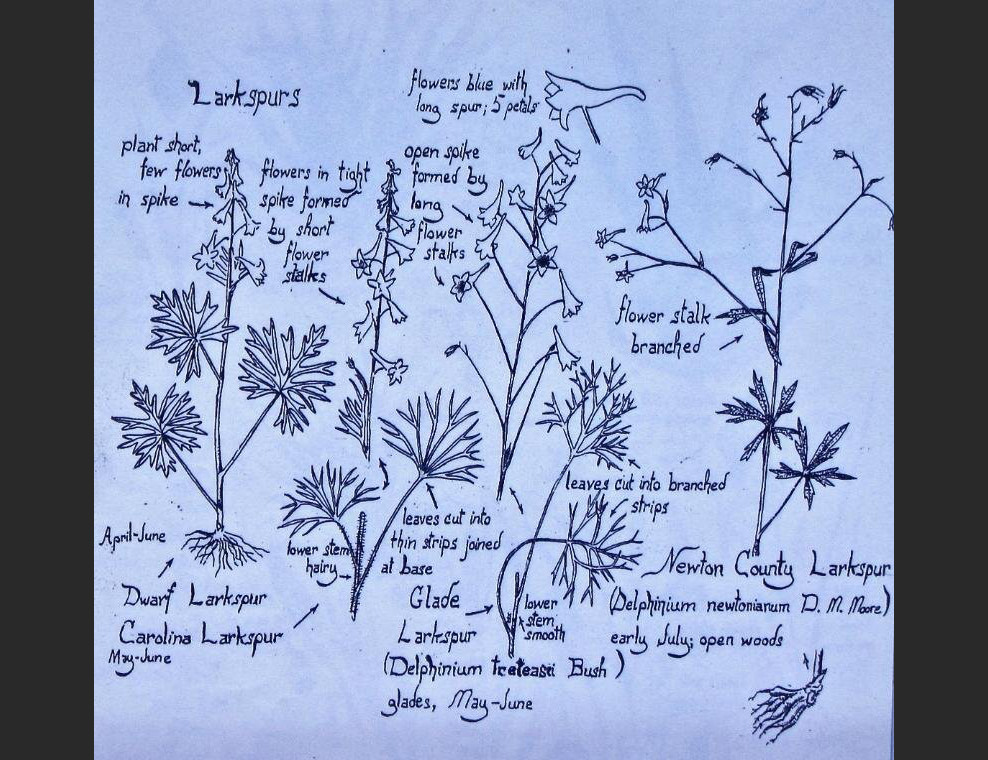 Larkspurs
flowers blue with
long spur; 5 petals
plant short,
few flowers
in spike
flowers in tight
spike formed
by short
flower
stalks
open spike
formed by
long
flower
stalks
flower stalk
branched
leaves cut into branched
strips
leaves cut into
thin strips joined
at base
lower stem
hairy
lower
stem
smooth
April-June
Dwarf Larkspur
Carolina Larkspur
May-June
Glade
Larkspur
(Delphinium Bush)
glades, May-June
Newton County Larkspur
(Delphinium newtonianum D. M. Moore)
early July; open woods